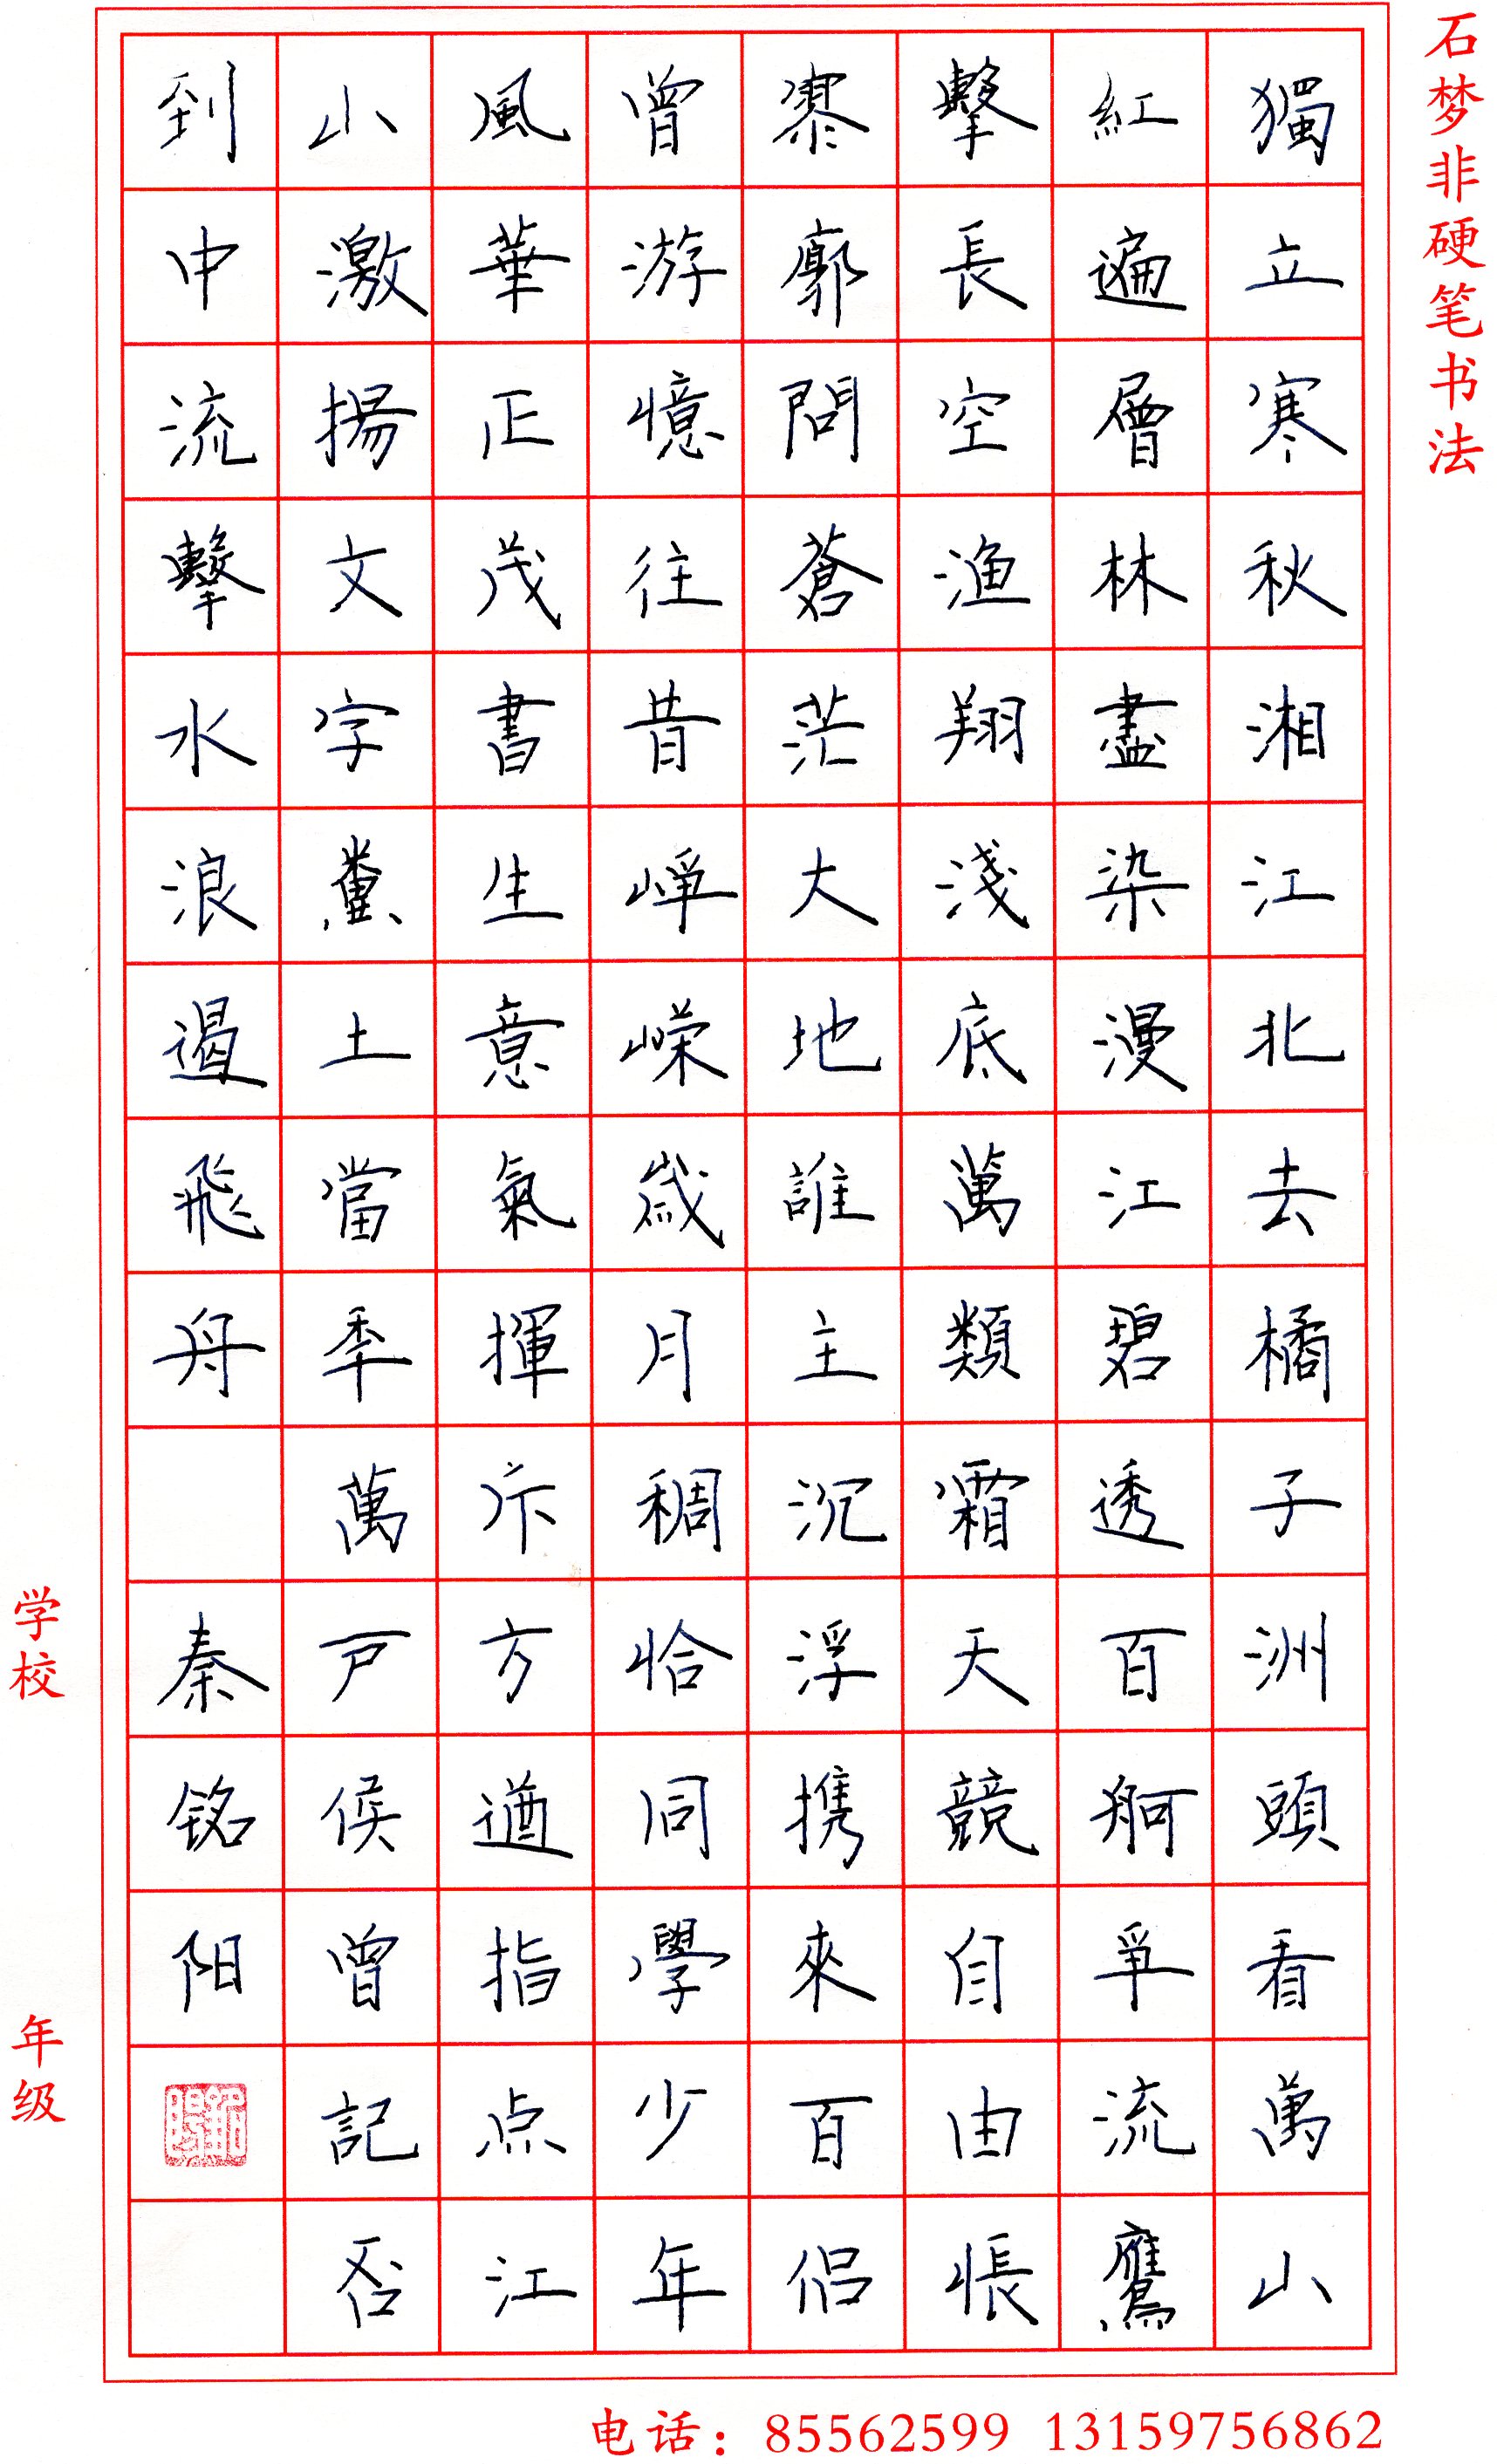 石梦非硬笔书法
獨立寒秋湘江北去橘子洲頭看萬山
紅遍層林盡染漫江碧透百舸爭流鷹
擊長空漁翔淺底萬類霜天競自由悵
寥廓問蒼茫大地誰主沉浮携來百侣
曾游憶往昔崢嶸歲月稠恰同學少年
風華正茂書生意氣揮斥方遒指点江
山激揚文字糞土當秊萬戸侯曾記否
到中流擊水浪遏飛舟 秦铭阳
学校 年级
电话：85562599 13159756862